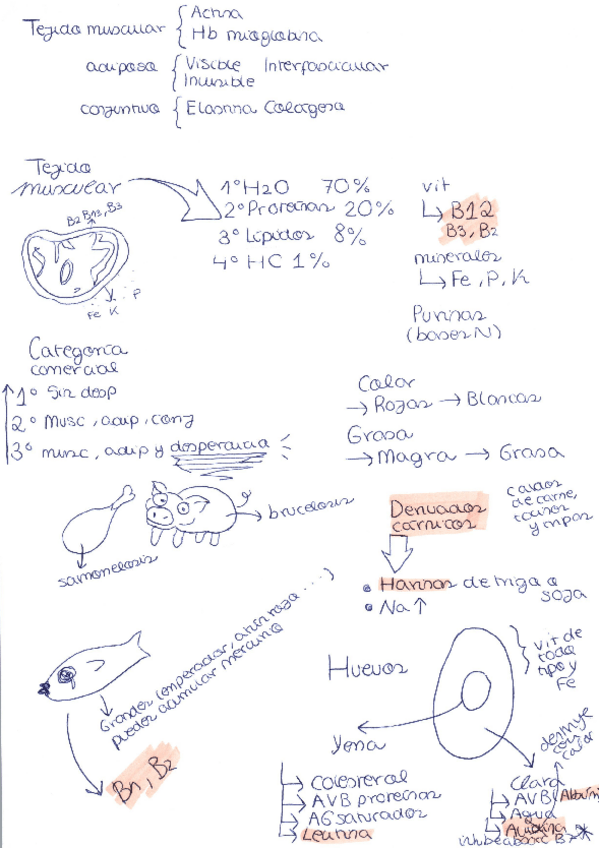 Tejido muscular { Actina
Hb mioglobina
adiposo { Visible Interfascicular
Invisible
conjuntivo { Elastina Colágeno
Tejido
muscular
B2 B12, B3
Fe K P
1º H2O 70%
2º Proteínas 20%
3º Lípidos 8%
4º HC 1%
vit
↳ B12
B3, B2
minerales
↳ Fe, P, K
Purinas
(bases N)
Categoría
comercial
1º Sin desp
2º Musc, adip, conj
3º musc, adip y desperdicia
Color
→ Rojas → Blancas
Grasa
→ Magra → Grasa
samonelosis
brucelosis
Derivados
cárnicos
caldos
de carne,
y tripas
• Harinas de trigo o
soja
• Na ↑
Grandes (emperador, atún rojo ....)
pueden acumular mercurio
B1, B2
Huevos
vit de
todo
tipo y
Fe
Yema
↳ colesterol
↳ AVB proteínas
↳ AG saturados
↳ Lecitina
destruye
con
calor
Clara
↳ AVB
↳ Agua
↳ Avidina